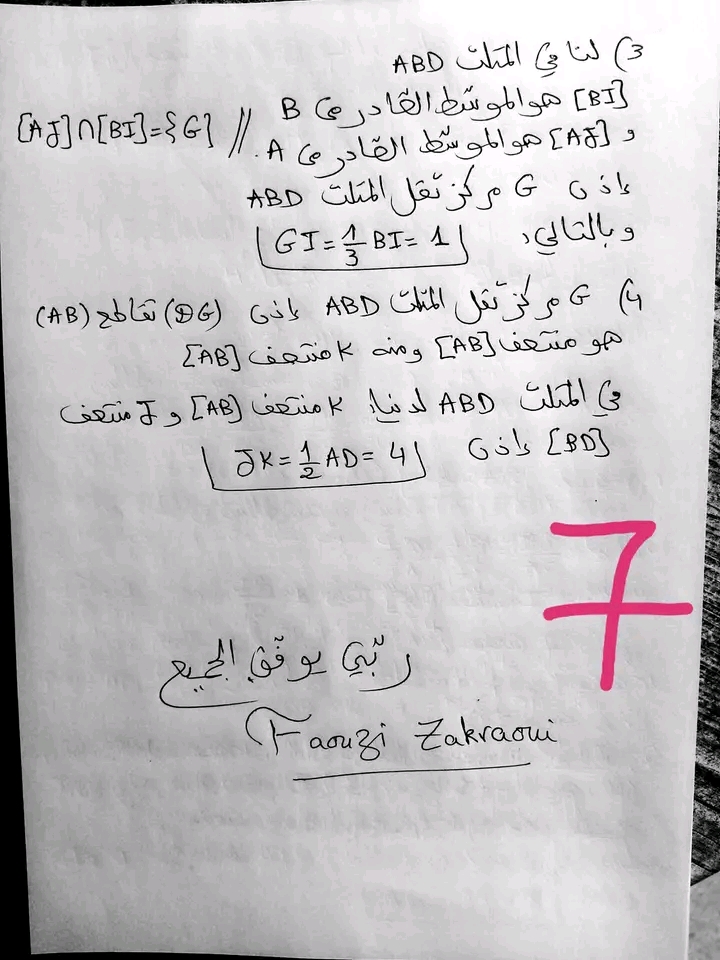 3) لنا في المثلث ABD
[BI] هو الموسّط الصّادر من B
و [AJ] هو الموسّط الصّادر من A. // [AJ]∩[BI]={G}
إذن G مركز ثقل المثلث ABD
وبالتالي،
GI = 1/3 BI = 1
4) G مركز ثقل المثلث ABD إذن (DG) تقاطع (AB)
هو منتصف [AB] ومنه K منتصف [AB]
في المثلث ABD لدينا: K منتصف [AB] و J منتصف
[BD] إذن JK = 1/2 AD = 4
7
ربّي يوفّق الجميع
Faouzi Zakraoui